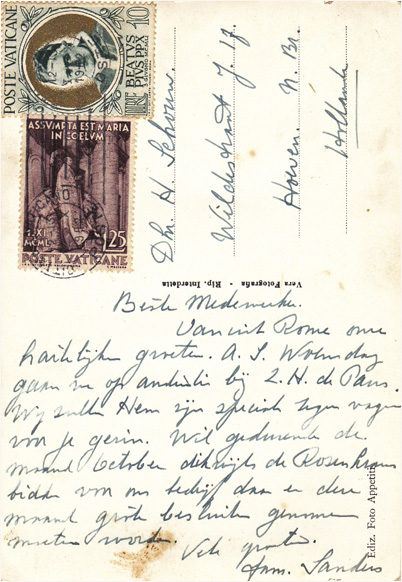 POSTE VATICANE
BEATUS
PIUS PP X
10
ASSVMPTA EST MARIA
IN COELVM
1.XI
MCML
125
POSTE VATICANE
Dhr. H. Schouw.
Wildschant J. 17
Hoeven. N. Br.
Holland
Vera Fotografia - Rip. Interdetta
Ediz. Foto Appetiti
Beste Medewerker.
Vanuit Rome onze
hartelijke groeten. A. S. Woensdag
gaan we op audientie bij Z. H. de Paus.
Wij zullen Hem zijn speciale zegen vragen
voor je gezin. Wil gedurende de
maand October dikwijls de Rozenkrans
bidden voor ons bedrijf daar er deze
maand grote besluiten genomen
moeten worden.
Vele groeten.
Fam. Sanders